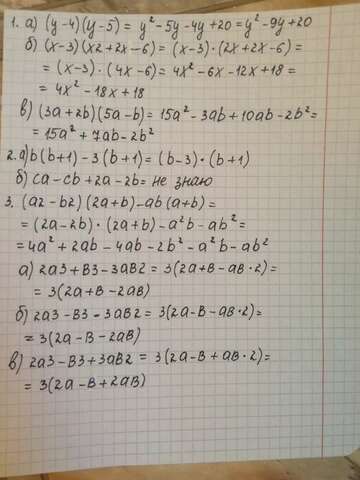 1. а) (y-4)(y-5) = y²-5y-4y+20 = y²-9y+20
б) (x-3)(x2+2x-6) = (x-3)·(2x+2x-6) =
= (x-3)·(4x-6) = 4x²-6x-12x+18 =
= 4x²-18x+18
в) (3a+2b)(5a-b) = 15a²-3ab+10ab-2b²=
= 15a²+7ab-2b²
2. а) b(b+1)-3(b+1) = (b-3)·(b+1)
б) ca-cb+2a-2b = не знаю
3. (a2-b2)(2a+b)-ab(a+b) =
= (2a-2b)·(2a+b)-a²b-ab² =
= 4a²+2ab-4ab-2b²-a²b-ab²
а) 2a3+B3-3aB2 = 3(2a+B-aB·2) =
= 3(2a+B-2aB)
б) 2a3-B3-3aB2 = 3(2a-B-aB·2) =
= 3(2a-B-2aB)
в) 2a3-B3+3aB2 = 3(2a-B+aB·2) =
= 3(2a-B+2aB)